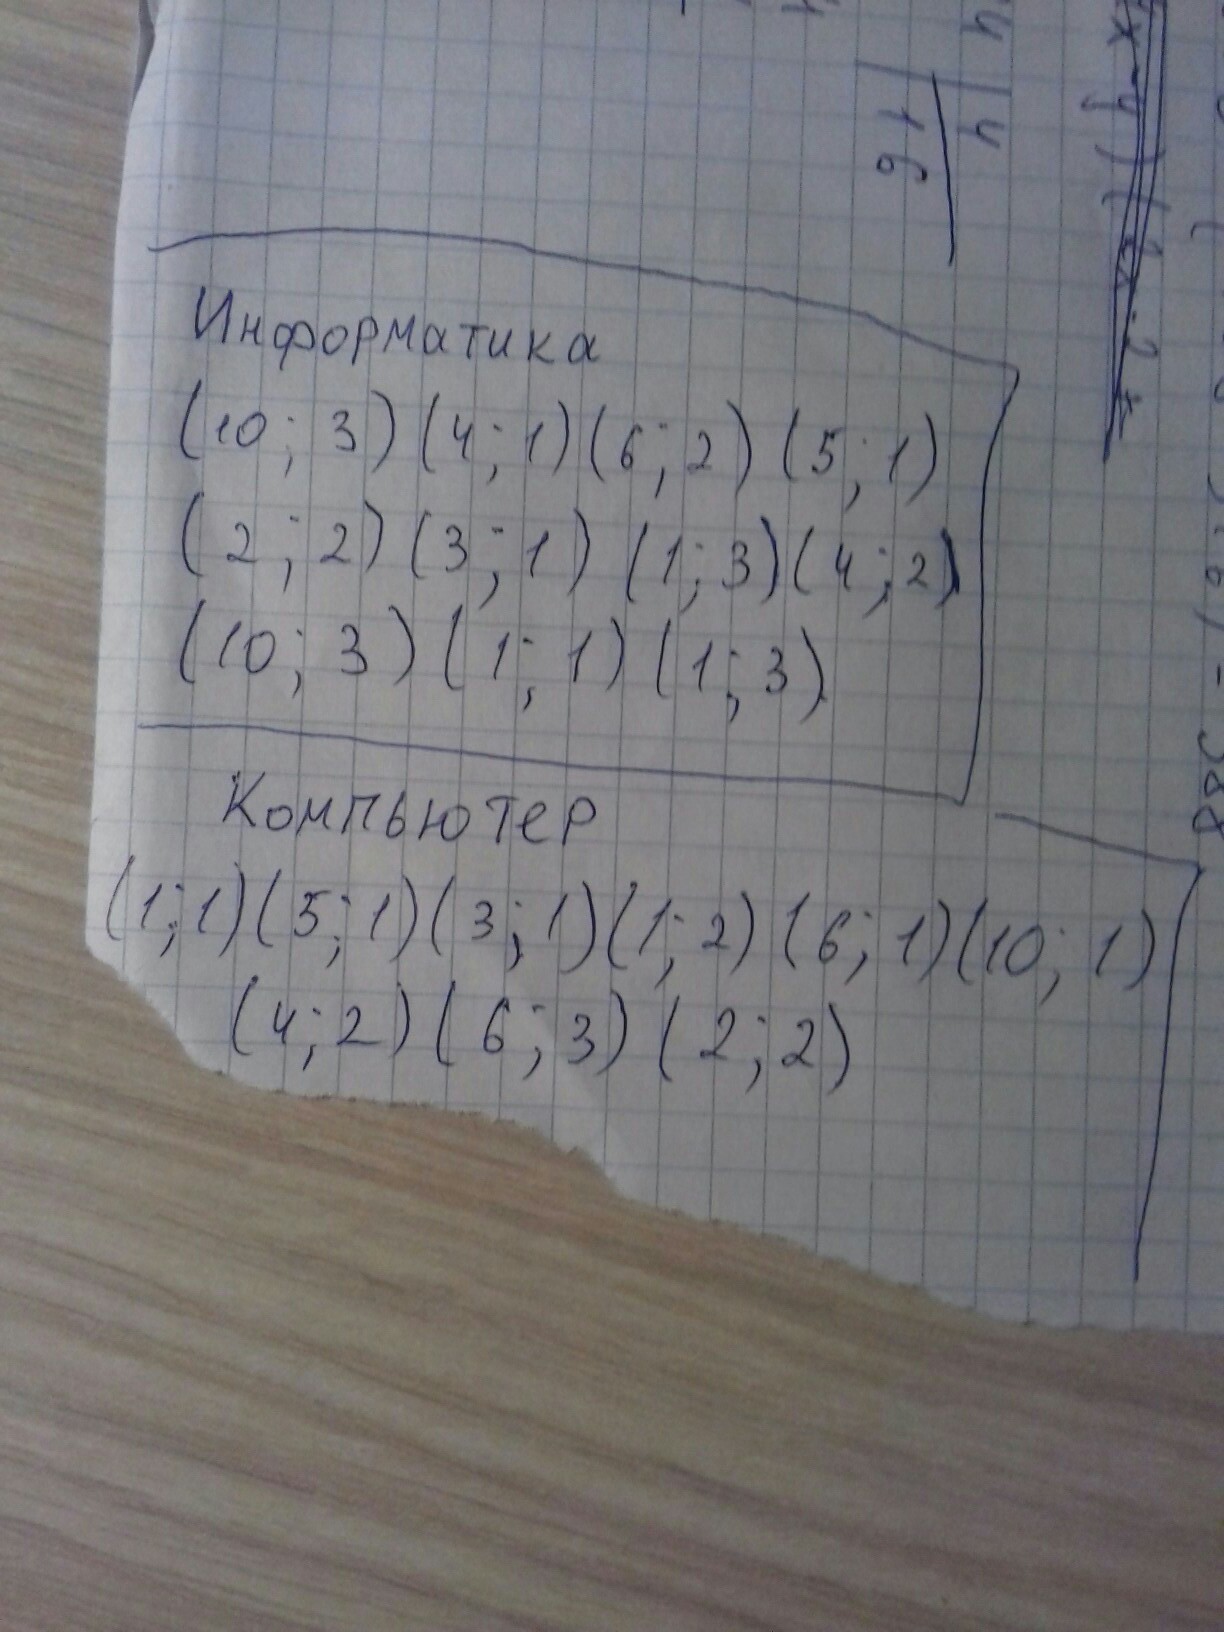 Информатика
(10; 3) (4; 1) (6; 2) (5; 1)
(2; 2) (3; 1) (1; 3) (4; 2)
(10; 3) (1; 1) (1; 3)
Компьютер
(1; 1) (5; 1) (3; 1) (1; 2) (6; 1) (10; 1)
(4; 2) (6; 3) (2; 2)
4
4
16
388